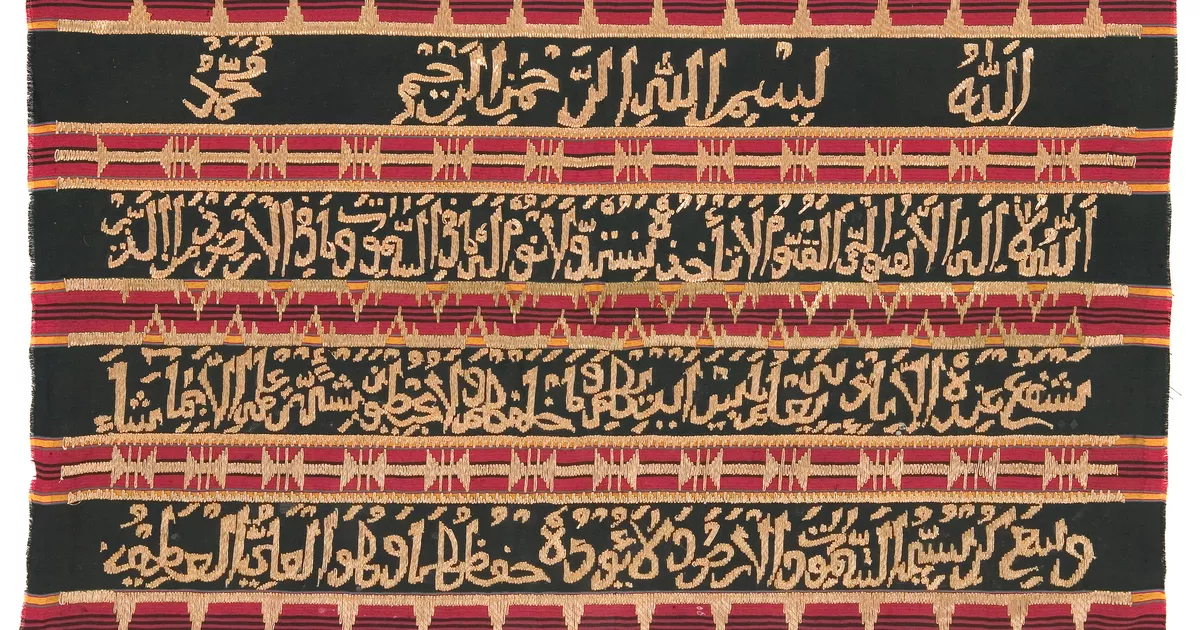 اللّٰه بسم اللّٰه الرّحمن الرّحيم محمّد
اللّٰه لا اله الا هو الحي القيّوم لا تأخذه سنة ولا نوم له ما في السموت وما في الارض من ذا الذي
يشفع عنده الا باذنه يعلم ما بين ايديهم وما خلفهم ولا يحيطون بشيء من علمه الا بما شاء
وسع كرسيّه السموت والارض ولا يؤده حفظهما وهو العليّ العظيم